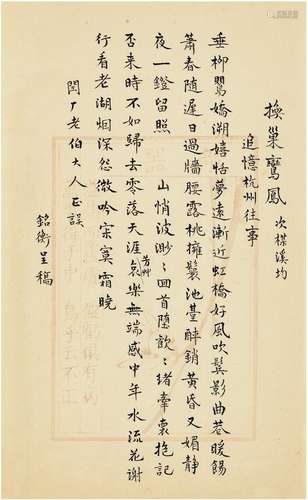 換巢鸞鳳 次楳溪均
追憶杭州往事
垂柳鸎嬌溯嬉恬夢遠漸近虹橋好風吹鬓影曲巷暖餳
簫春隨遲日過牆腰露桃擁鬟池䑓醉銷黃昏又媚靜
夜一鐙留照 山悄波渺ミ回首墮歡ミ緒牽裹抱記
否来時不如歸去零落天涯芳艸哀樂無端感中年水流花謝
行看老湖烟深恁微吟宋寞霜曉
閏厂老伯大人正誤
銘衡呈稿